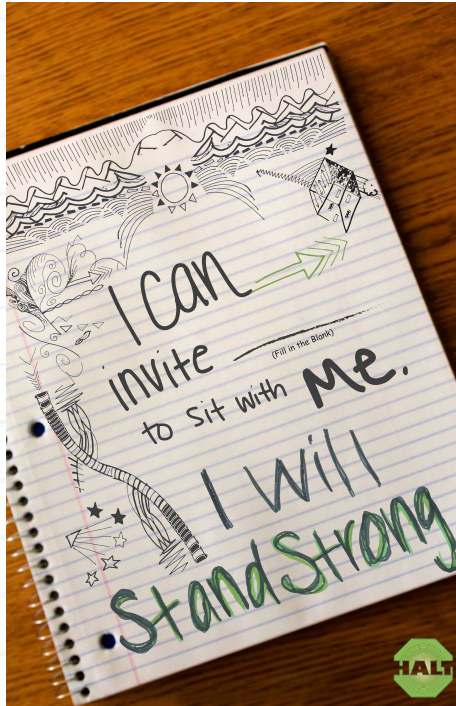 I can
invite ____________
(Fill in the Blank)
to sit with Me.
I Will
Stand Strong
HALT